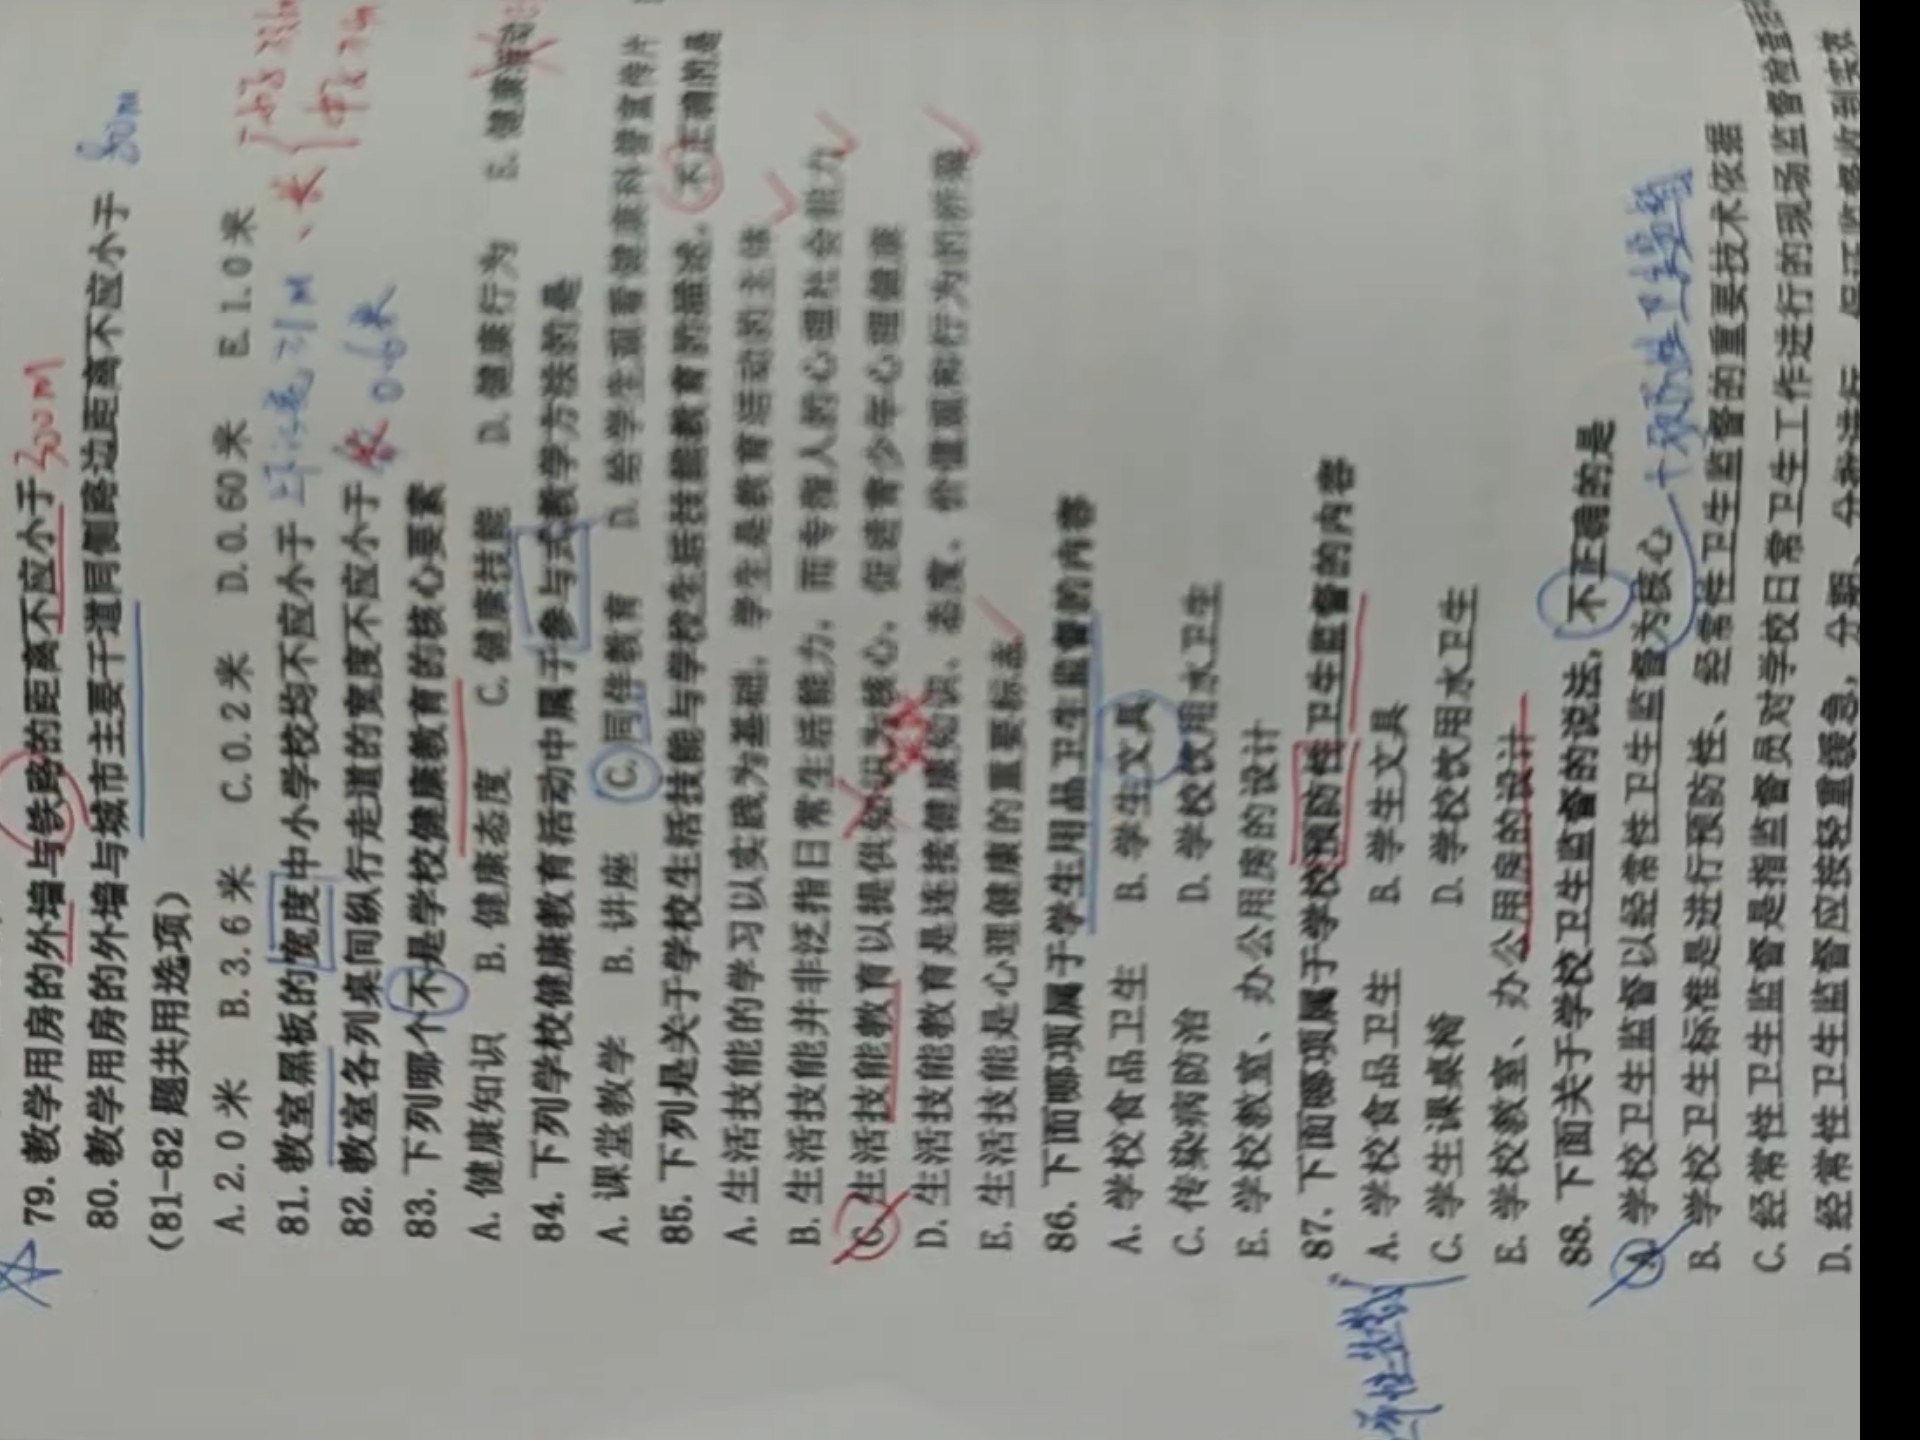 79. 教学用房的外墙与铁路的距离不应小于 300M
80. 教学用房的外墙与城市主要干道同侧路边距离不应小于 80m
(81-82 题共用选项)
A. 2.0 米 B. 3.6 米 C. 0.2 米 D. 0.60 米 E. 1.0 米
81. 教室黑板的宽度中小学校均不应小于
82. 教室各列桌间纵行走道的宽度不应小于 0.6米
83. 下列哪个不是学校健康教育的核心要素
A. 健康知识 B. 健康态度 C. 健康技能 D. 健康行为 E. 健康活动
84. 下列学校健康教育活动中属于参与式教学方法的是
A. 课堂教学 B. 讲座 C. 同伴教育 D. 给学生观看健康科普宣传片
85. 下列是关于学校生活技能与学校生活技能教育的描述, 不正确的是
A. 生活技能的学习以实践为基础, 学生是教育活动的主体
B. 生活技能并非泛指日常生活能力, 而专指人的心理社会能力
C. 生活技能教育以提供知识为核心, 促进青少年心理健康
D. 生活技能教育是连接健康知识、态度、价值观和行为的桥梁
E. 生活技能是心理健康的重要标志
86. 下面哪项属于学生用品卫生监督的内容
A. 学校食品卫生 B. 学生文具
C. 传染病防治 D. 学校饮用水卫生
E. 学校教室、办公用房的设计
87. 下面哪项属于学校预防性卫生监督的内容
A. 学校食品卫生 B. 学生文具
C. 学生课桌椅 D. 学校饮用水卫生
E. 学校教室、办公用房的设计
88. 下面关于学校卫生监督的说法, 不正确的是
A. 学校卫生监督以经常性卫生监督为核心
B. 学校卫生标准是进行预防性、经常性卫生监督的重要技术依据
C. 经常性卫生监督是指监督员对学校日常卫生工作进行的现场监督检查
D. 经常性卫生监督应按轻重缓急, 分期、分类进行